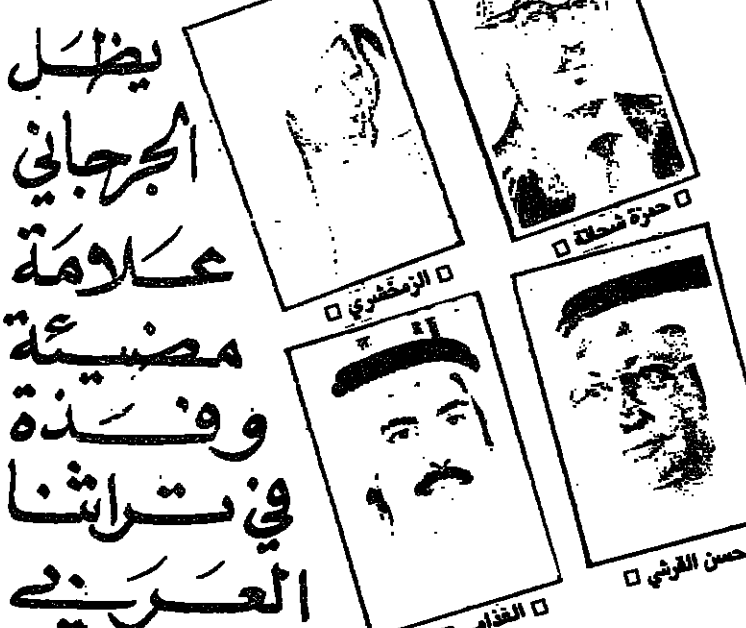 يظل
الجرجاني
علامة
مضيئة
وفذة
في تراثنا
العربي
□ حمزة شحاتة □
□ الزمخشري □
حسن القرشي □
□ الغذامي